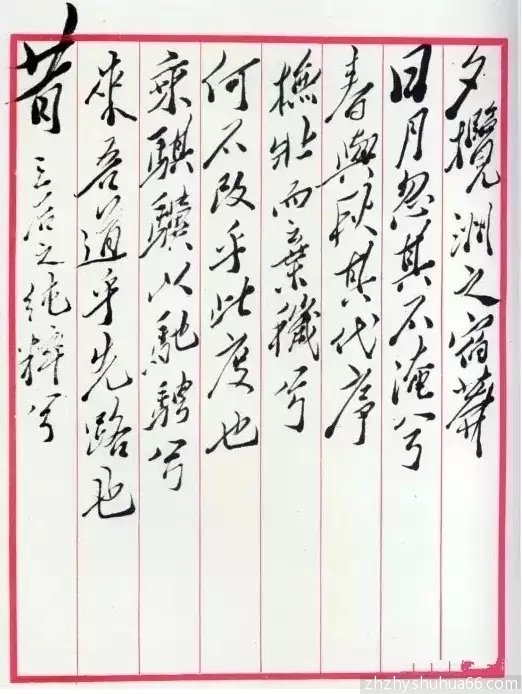 夕攬洲之宿莽
日月忽其不淹兮
春與秋其代序
撫壯而棄穢兮
何不改乎此度也
乘騏驥以馳騁兮
來吾道乎先路也
昔三后之純粹兮
zhzhyshuhua66.com